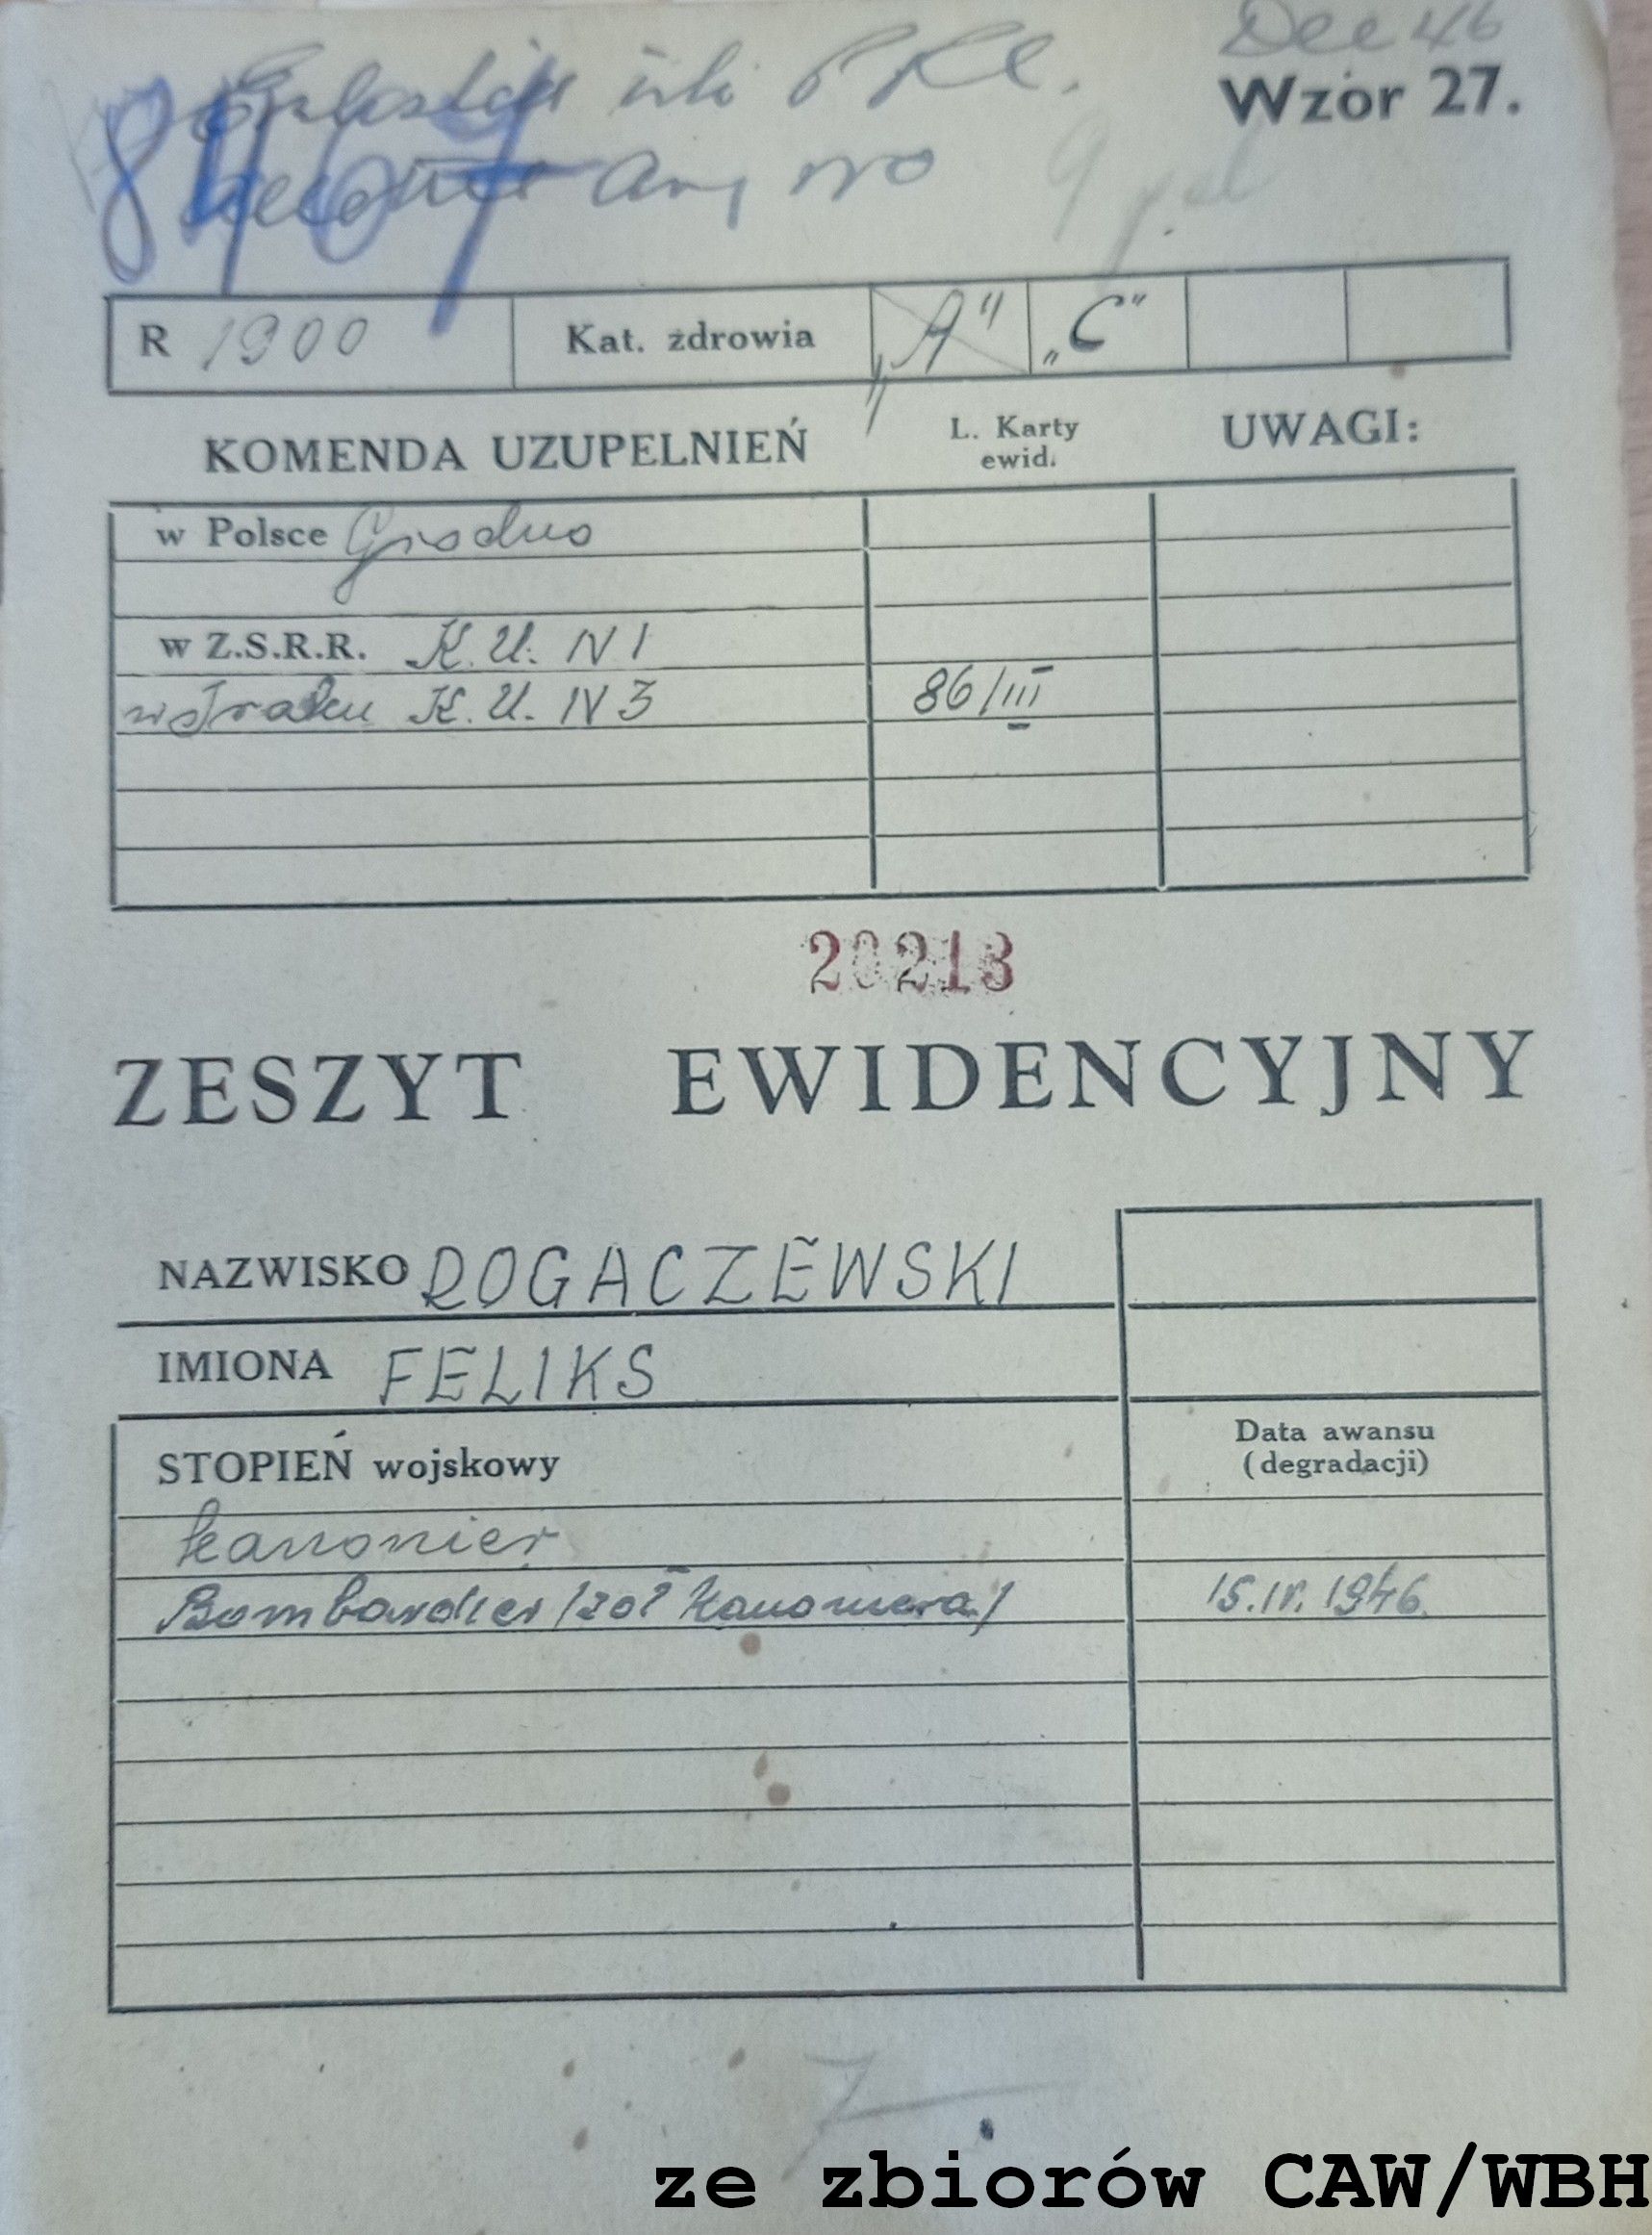 Dec 46
Wzór 27.
8467
9
R 1900 Kat. zdrowia „A” „C”
KOMENDA UZUPEŁNIEŃ L. Karty ewid. UWAGI:
w Polsce Grodno
w Z.S.R.R. K. U. N 1
w Iraku K. U. N 3 86/III
20213
ZESZYT EWIDENCYJNY
NAZWISKO ROGACZEWSKI
IMIONA FELIKS
STOPIEŃ wojskowy Data awansu (degradacji)
kanonier
Bombardier /zof kanoniera/ 15.IV.1946.
ze zbiorów CAW/WBH